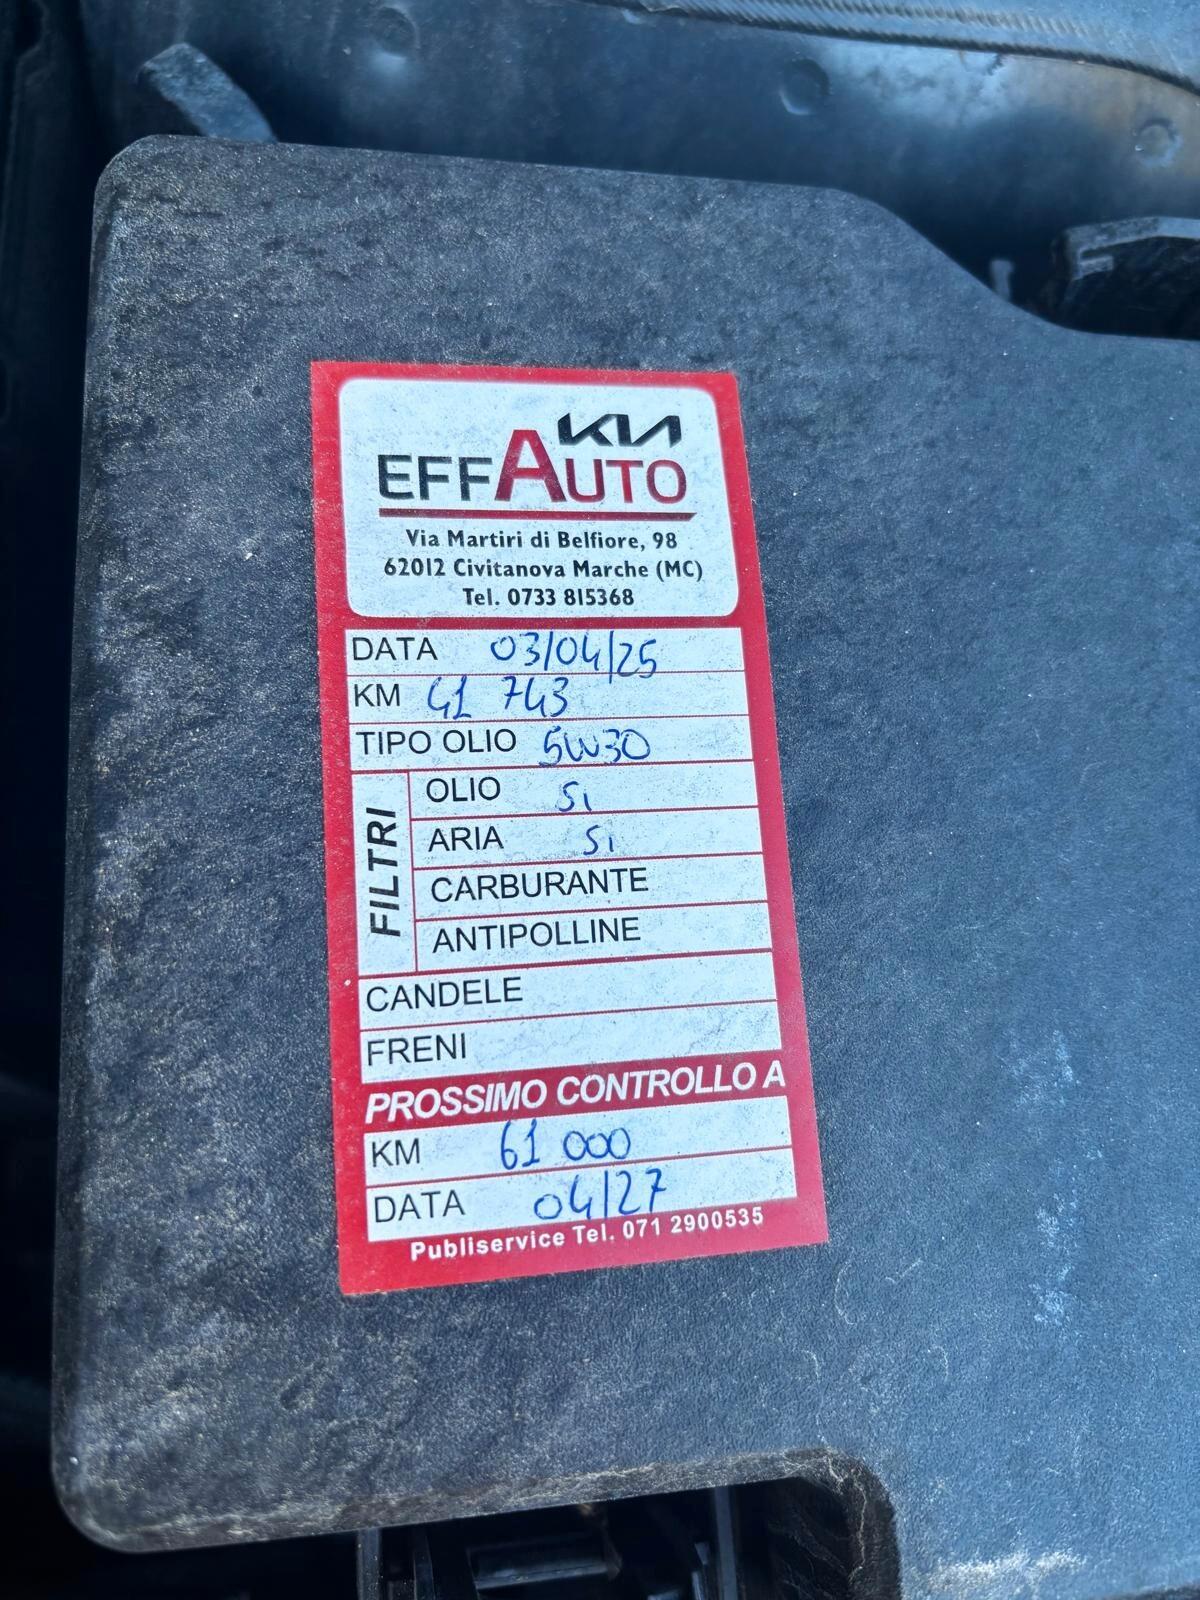 KIA
EFFAUTO
Via Martiri di Belfiore, 98
62012 Civitanova Marche (MC)
Tel. 0733 815368
DATA 03/04/25
KM 41 743
TIPO OLIO 5W30
FILTRI
OLIO Si
ARIA Si
CARBURANTE
ANTIPOLLINE
CANDELE
FRENI
PROSSIMO CONTROLLO A
KM 61 000
DATA 04/27
Publiservice Tel. 071 2900535